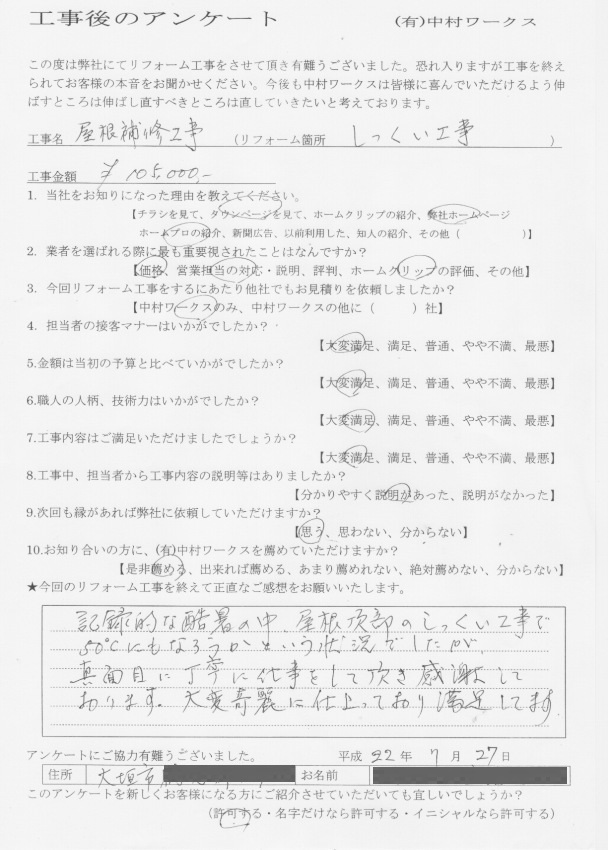 工事後のアンケート (有)中村ワークス
この度は弊社にてリフォーム工事をさせて頂き有難うございました。恐れ入りますが工事を終え
られてお客様の本音をお聞かせください。今後も中村ワークスは皆様に喜んでいただけるよう伸
ばすところは伸ばし直すべきところは直していきたいと考えております。
工事名 屋根補修工事 (リフォーム箇所 しっくい工事 )
工事金額 ¥105,000.-
1. 当社をお知りになった理由を教えてください。
【チラシを見て、タウンページを見て、ホームクリップの紹介、弊社ホームページ
ホームプロの紹介、新聞広告、以前利用した、知人の紹介、その他 ( )】
2. 業者を選ばれる際に最も重要視されたことはなんですか?
【価格、営業担当の対応・説明、評判、ホームクリップの評価、その他】
3. 今回リフォーム工事をするにあたり他社でもお見積りを依頼しましたか?
【中村ワークスのみ、中村ワークスの他に ( ) 社】
4. 担当者の接客マナーはいかがでしたか?
【大変満足、満足、普通、やや不満、最悪】
5.金額は当初の予算と比べていかがでしたか?
【大変満足、満足、普通、やや不満、最悪】
6.職人の人柄、技術力はいかがでしたか?
【大変満足、満足、普通、やや不満、最悪】
7.工事内容はご満足いただけましたでしょうか?
【大変満足、満足、普通、やや不満、最悪】
8.工事中、担当者から工事内容の説明等はありましたか?
【分かりやすく説明があった、説明がなかった】
9.次回も縁があれば弊社に依頼していただけますか?
【思う、思わない、分からない】
10.お知り合いの方に、(有)中村ワークスを薦めていただけますか?
【是非薦める、出来れば薦める、あまり薦めれない、絶対薦めない、分からない】
★今回のリフォーム工事を終えて正直なご感想をお願いいたします。
記録的な酷暑の中、屋根頂部のしっくい工事で
50℃にもなろうかという状況でしたが、
真面目に丁寧に仕事をして頂き感謝して
おります。大変奇麗に仕上っており満足してます
アンケートにご協力有難うございました。 平成 22 年 7 月 27 日
住所 大垣市 お名前
このアンケートを新しくお客様になる方にご紹介させていただいても宜しいでしょうか?
(許可する・名字だけなら許可する・イニシャルなら許可する)